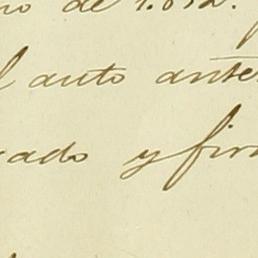 no de 1.892.
l auto ante
ado y fir